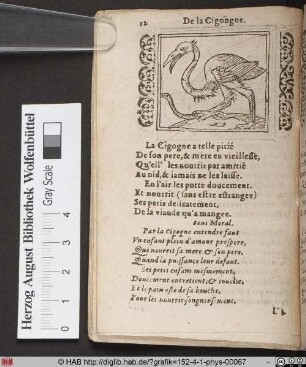 12 De la Cigongne.
La Cigogne a telle pitié
De son pere, & mere en vieillesse,
Qu'ell' les nourrit par amitié
Au nid, & iamais ne les laisse.
En l'air les porte doucement,
Et nourrit (sans estre estrangee)
Ses petis delicatement,
De la viande qu'a mangee.
Sens Moral.
Par la Cigogne entendre faut
Vn enfant plein d'amour prospere,
Qui nourrit sa mere & son pere,
Quand la puissance leur defaut.
Ses petis enfans mesmement,
Doucement entretient, & couche,
Et le pain oste de sa bouche,
Pour les nourrir songneusement.
Herzog August Bibliothek Wolfenbüttel
Gray Scale
0 1 2 3 4
© HAB http://diglib.hab.de/?grafik=152-4-1-phys-00067